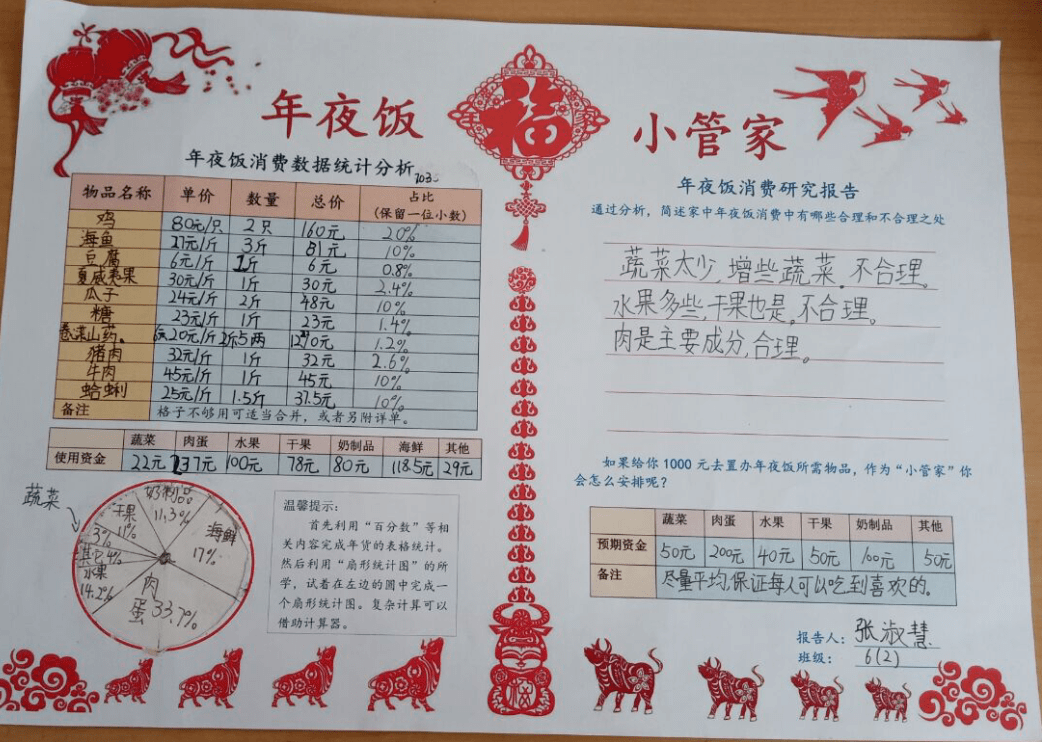 年夜饭
福
小管家
年夜饭消费数据统计分析
物品名称 单价 数量 总价 占比(保留一位小数)
鸡 80元/只 2只 160元 20%
海鱼 27元/斤 3斤 81元 10%
豆腐 6元/斤 1斤 6元 0.8%
夏威夷果 30元/斤 1斤 30元 2.4%
瓜子 24元/斤 2斤 48元 10%
糖 23元/斤 1斤 23元 1.4%
山药。 20元/斤 5两 1.2%
猪肉 32元/斤 1斤 32元 2.6%
牛肉 45元/斤 1斤 45元 10%
蛤蜊 25元/斤 1.5斤 37.5元 10%
备注 格子不够用可适当合并，或者另附详单。
蔬菜 肉蛋 水果 干果 奶制品 海鲜 其他
使用资金 22元 237元 100元 78元 80元 118.5元 29元
蔬菜
奶制品
11.3%
干果
11%
海鲜
17%
3%
其它4%
水果
14.2%
肉
蛋33.7%
温馨提示:
首先利用“百分数”等相
关内容完成年货的表格统计。
然后利用“扇形统计图”的所
学，试着在左边的圆中完成一
个扇形统计图。复杂计算可以
借助计算器。
年夜饭消费研究报告
通过分析，简述家中年夜饭消费中有哪些合理和不合理之处
蔬菜太少，增些蔬菜。不合理。
水果多些，干果也是。不合理。
肉是主要成分，合理。
如果给你1000元去置办年夜饭所需物品，作为“小管家”你
会怎么安排呢？
蔬菜 肉蛋 水果 干果 奶制品 其他
预期资金 50元 200元 40元 50元 100元 50元
备注 尽量平均，保证每人可以吃到喜欢的。
报告人: 张淑慧
班级: 6(2)